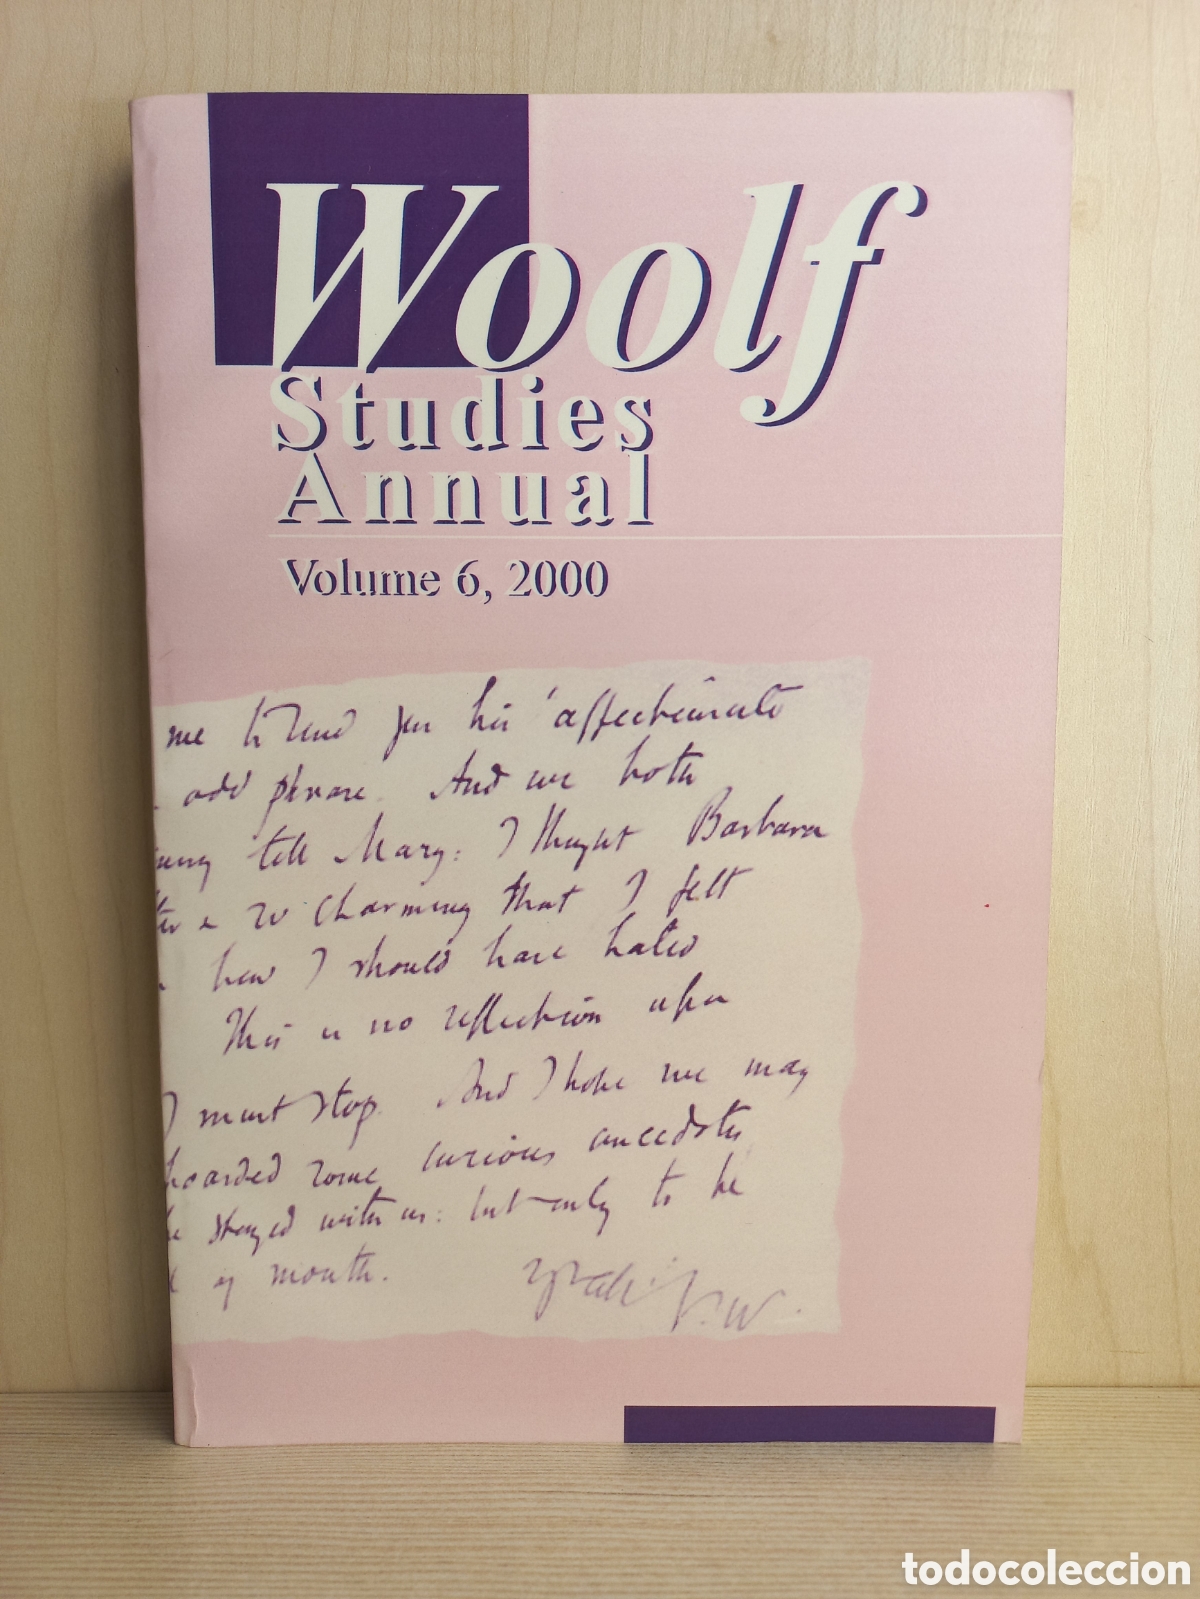 Woolf
Studies
Annual
Volume 6, 2000
me to send you his 'affectionate
odd phrase. And we both
tell Mary: I thought Barbara
so charming that I felt
how I should have hated
This is no reflection upon
I must stop. And I hope we may
hoarded some curious anecdotes
stayed with us: but only to be
of mouth.
V.W.
todocoleccion